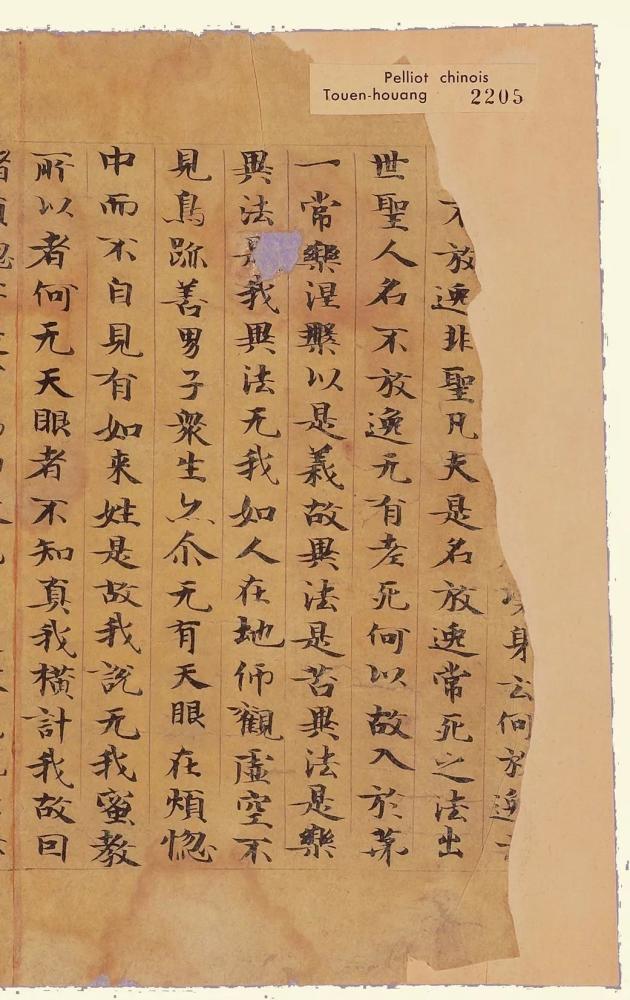 Pelliot chinois
Touen-houang 2205
身云何放逸
不放逸非聖凡夫是名放逸常死之法出
世聖人名不放逸无有老死何以故入於苐
一常樂涅槃以是義故異法是苦異法是樂
異法是我異法无我如人在地仰觀虛空不
見鳥跡善男子衆生亦尒无有天眼在煩惱
中而不自見有如来姓是故我說无我蜜教
所以者何无天眼者不知真我橫計我故因